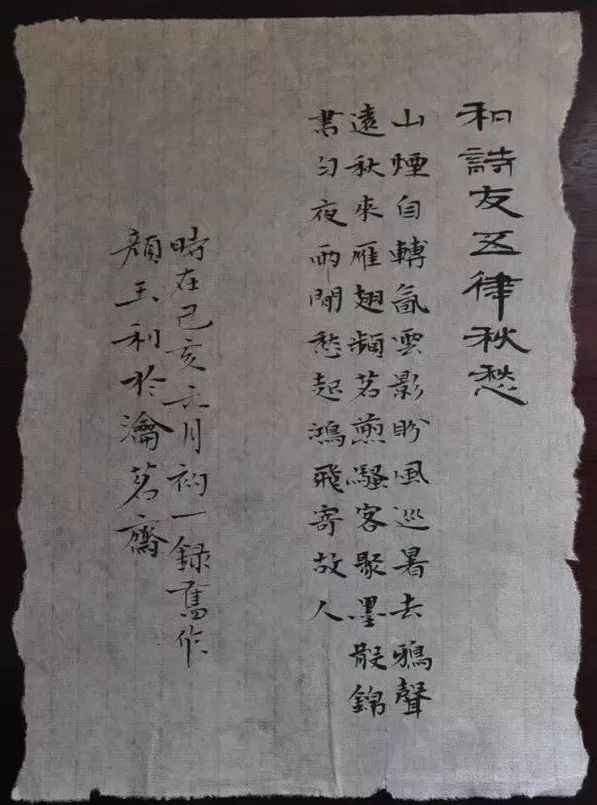 和詩友五律秋愁
山煙自轉氤雲影盼風巡暑去鴉聲
遠秋來雁翅頻茗煎騷客聚墨散錦
書勻夜雨閒愁起鴻飛寄故人
時在己亥六月初一録舊作
顏玉利於瀹茗齋